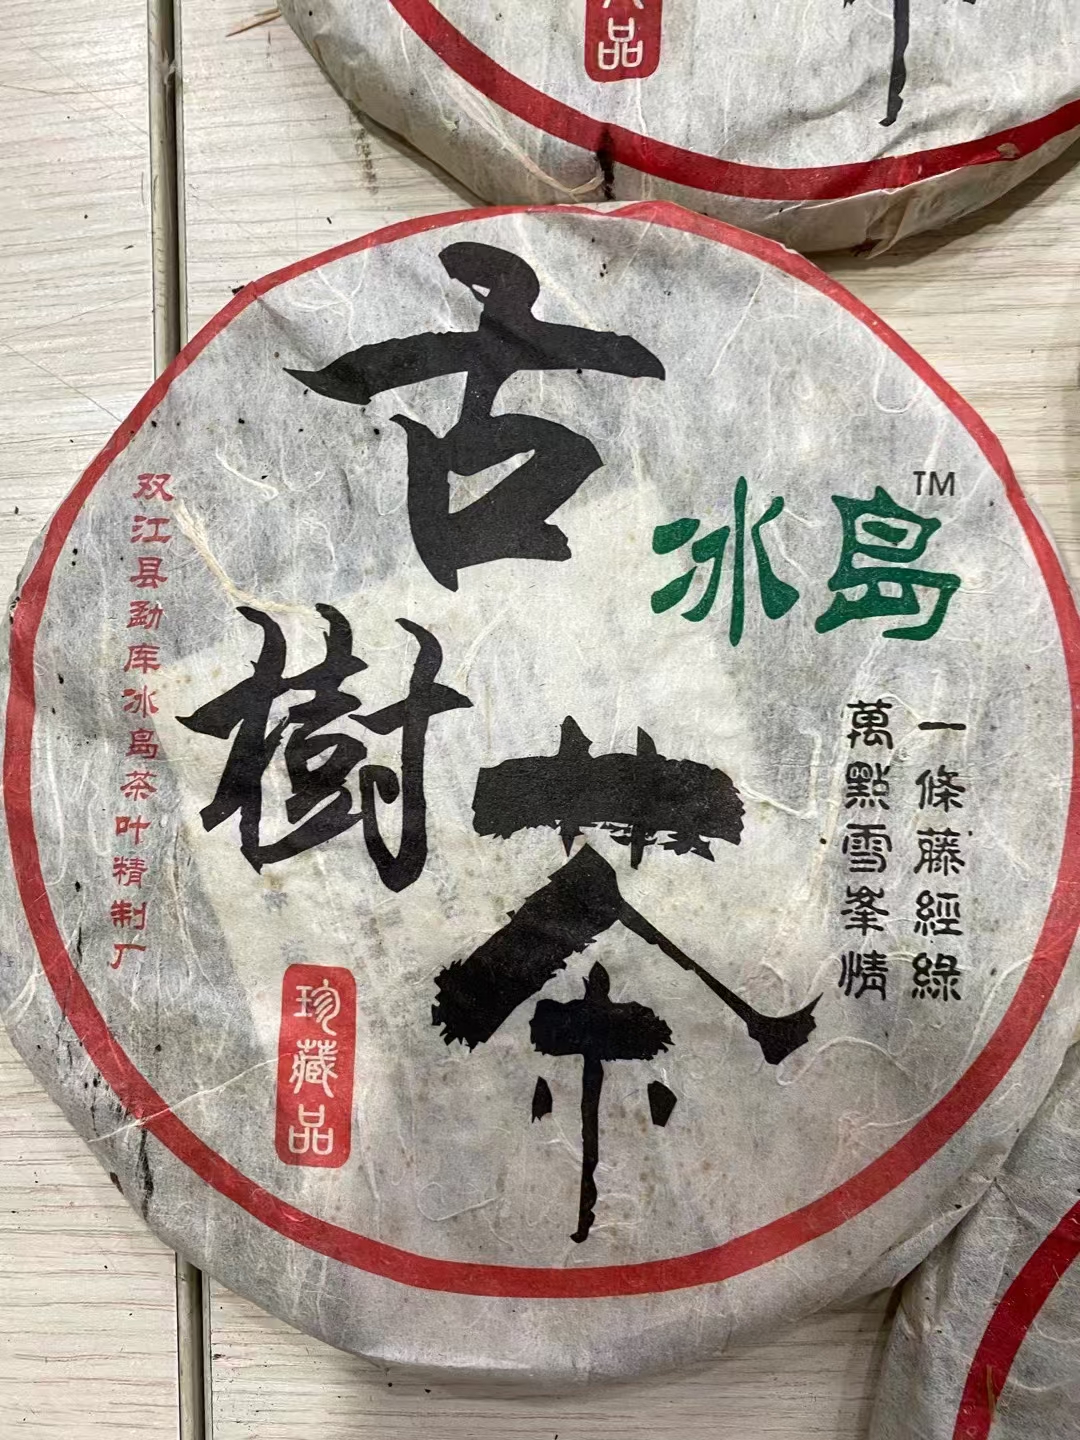 品
古樹茶
冰島™
一條藤經綠
萬點雪峯情
双江县勐库冰岛茶叶精制厂
珍藏品